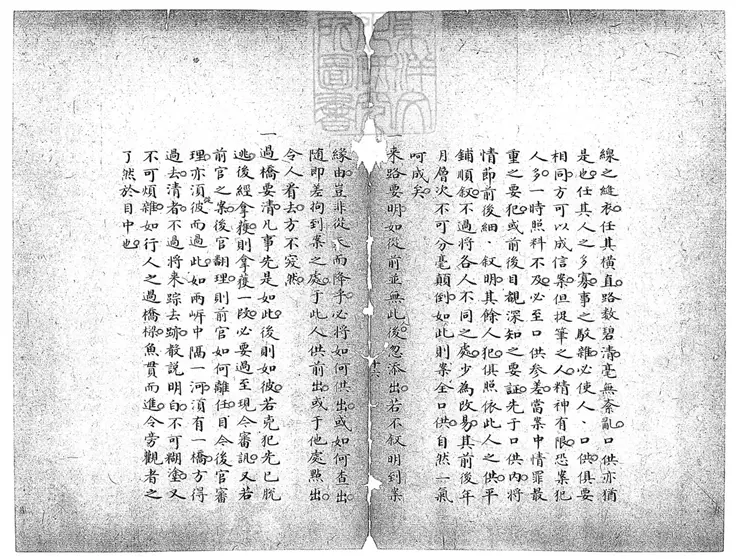 線之縫衣任其橫直路數碧清毫無紊亂口供亦猶
是也任其人之多寡事之駁雜必使人、口供俱要
相同方可以成信案但捉筆之人精神有限恐案犯
人多一時照料不及必至口供參差當案中情罪最
重之要犯或前後目覩深知之要証先于口供內將
情節前後細、叙明其餘人犯俱照依此人之供平
鋪順叙不過將各人不同之處少為改易其前後年
月層次不可分毫顛倒如此則案全口供自然一氣
呵成矣
一來路要明如從前並無此後忽添出若不叙明到案
緣由豈非從天而降乎必將如何供出或如何查出
隨即差拘到案之處于此人供前出或于他處點出
令人看去方不突然
一過橋要清凡事先是如此後則如彼若先犯先已脫
逃後經拿獲則拿獲一段必要過至現今審訊又若
前官之案後官翻理則前官如何離任目今後官審
理亦須從彼而過此如兩岸中隔一河須有一橋方得
過去清者不過將來踪去跡敘說明白不可糊塗又
不可煩雜如行人之過橋樑魚貫而進令旁觀者之
了然於目中也